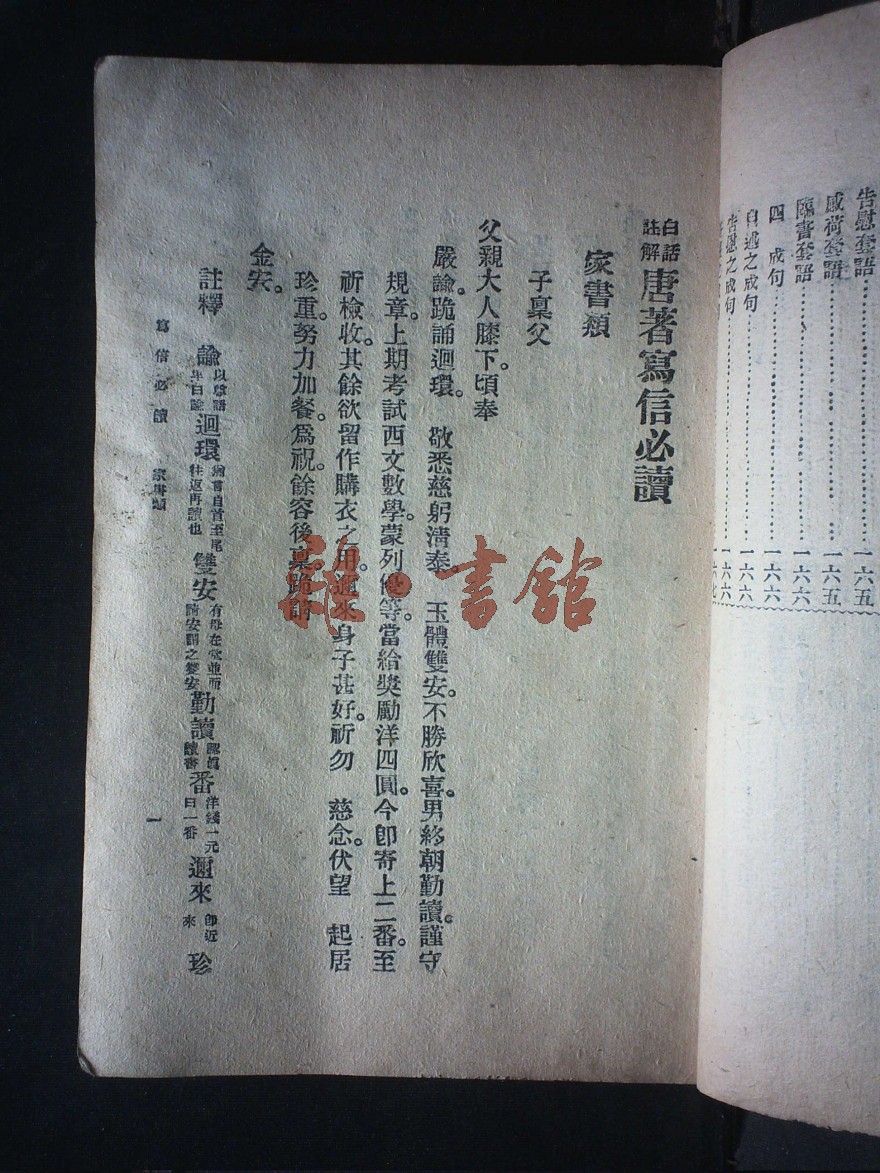 告慰套語……………一六五
感荷套語……………一六五
臨書套語……………一六六
四 成句……………一六六
自述之成句……………一六六
告慰之成句……………一六六
白話註解唐著寫信必讀
家書類
子稟父
父親大人膝下。頃奉
嚴諭。跪誦迴環。 敬悉慈躬清泰。 玉體雙安。不勝欣喜。男終朝勤讀。謹守
規章。上期考試西文數學。蒙列優等。當給獎勵洋四圓。今卽寄上二番。至
祈檢收。其餘欲留作購衣之用。邇來身子甚好。祈勿 慈念。伏望 起居
珍重。努力加餐。爲祝。餘容後稟。跪請
金安。
註釋 諭 迴環 續書自首至尾往返再讀也 雙安 有母在家並而請安謂之雙安 勤讀 讀書 番 洋錢一元曰一番 邇來 卽近來 珍
寫信必讀 家書類 一
雜·書館